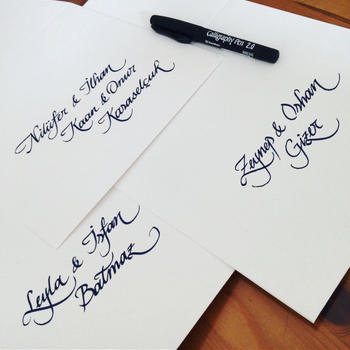 Calligraphy Pen 2.0
Nilüfer & İlhan
Kaan & Onur
Karaselçuk
Zeynep & Orhan
Gizer
Leyla & İrfan
Batmaz